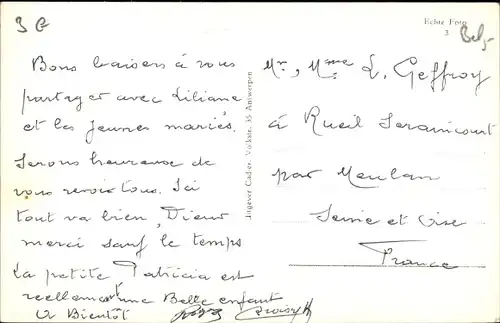 3 G
Echte Foto
3
Belg.
Bons baisers à vous
partager avec Liliane
et les jeunes mariés.
Serons heureuse de
vous revoir tous. Ici
tout va bien, Dieu
merci sauf le temps
La petite Patricia est
reellement une Belle enfant
A Bientôt
Uitgever Cadier. Volkstr. 35 Antwerpen
Mr, Mme L. Geffroy
à Rueil Seraincourt
par Meulan
Seine et Oise
France